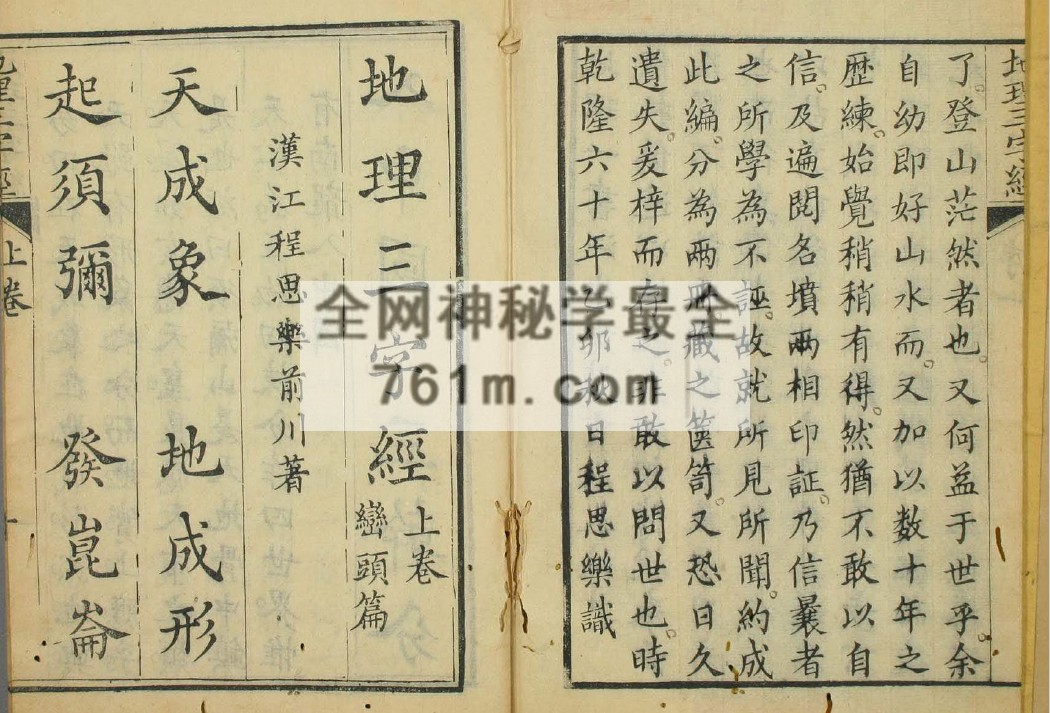 地理三字經
了登山茫然者也又何益于世乎余
自幼即好山水而又加以数十年之
歷練始覺稍稍有得然猶不敢以自
信及遍閱名墳兩相印証乃信曩者
之所學為不誣故就所見所聞約成
此編分為兩冊藏之篋笥又恐日久
遺失爰梓而存之非敢以問世也時
乾隆六十年乙卯秋日程思樂識
地理三字經 上卷
巒頭篇
漢江程思樂前川著
天成象 地成形
起須彌 發崑崙
地理三字經
上卷
全网神秘学最全
761m.com